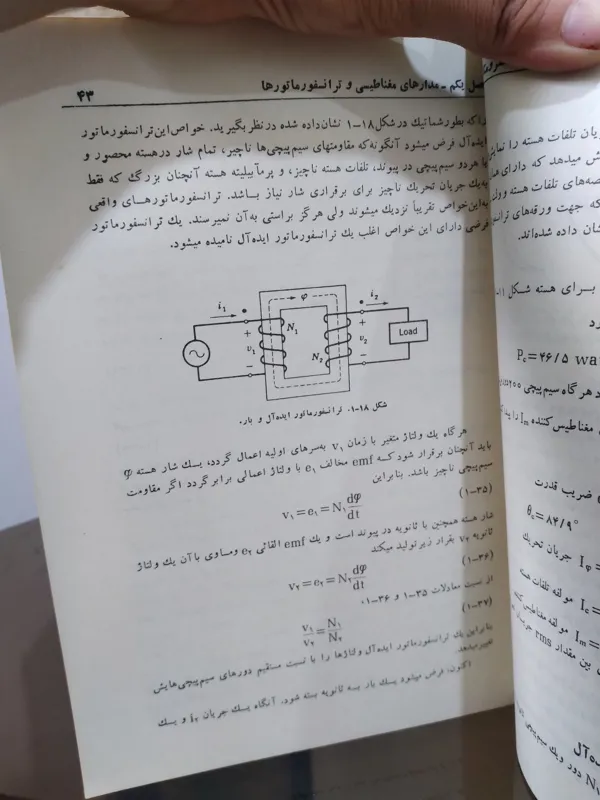 فصل یکم - مدارهای مغناطیسی و ترانسفورماتورها
۴۳
را که بطور شماتیك در شكل ۱۸-۱ نشان داده شده در نظر بگیرید. خواص این ترانسفورماتور
ایده‌آل فرض میشود آنگونه که مقاومتهای سیم‌پیچی‌ها ناچیز، تمام شار در هسته محصور و
با هر دو سیم‌پیچی در پیوند، تلفات هسته ناچیز، و پرمآبیلیته هسته آنچنان بزرگ که فقط
به یك جریان تحریك ناچیز برای برقراری شار نیاز باشد. ترانسفورماتورهای واقعی
به این خواص تقریباً نزدیك میشوند ولی هرگز براستی به آن نمیرسند. یك ترانسفورماتور
فرضی دارای این خواص اغلب یك ترانسفورماتور ایده‌آل نامیده میشود.
i1 φ i2
+ N1 + Load
v1 v2
N2
− −
شکل ۱۸-۱. ترانسفورماتور ایده‌آل و بار.
هرگاه یك ولتاژ متغیر با زمان v۱ به‌سرهای اولیه اعمال گردد، یسك شار هسته φ
باید آنچنان برقرار شود که emf مخالف e۱ با ولتاژ اعمالی برابر گردد اگر مقاومت
سیم‌پیچی ناچیز باشد. بنابراین
(۱-۳۵)
v۱ = e۱ = N۱ dφ/dt
شار هسته همچنین با ثانویه در پیوند است و یك emf القائی e۲ ومساوی با آن یك ولتاژ
ثانویه v۲ بقرار زیر تولید میکند
(۱-۳۶)
v۲ = e۲ = N۲ dφ/dt
از نسبت معادلات ۳۵-۱ و ۳۶-۱،
(۱-۳۷)
v۱/v۲ = N۱/N۲
بنابراین یك ترانسفورماتور ایده‌آل ولتاژها را با نسبت مستقیم دورهای سیم‌پیچی‌هایش
تغییر میدهد.
اکنون، فرض میشود یسك بار بسه ثانویه بسته شود. آنگاه یسك جریان i۲ و یسك
ریان تلفات هسته را نمایش
ش میدهد که دارای
صه‌های تلفات هسته و
که جهت ورقه‌های
شان داده شده‌اند.
برای هسته شکل ۱۱-
رد
Pc = ۴۶/۵ wa
د هرگاه سیم‌پیچی ۲۰۰
مغناطیس کننده Im را
ضریب قدرت
θc = ۸۴/۹°
Iφ = جریان تحریك
Ic = مولفه تلفات هسته
Im = مولفه مغناطیس
بین مقدار rms
ده‌آل
N۱ دور ویك